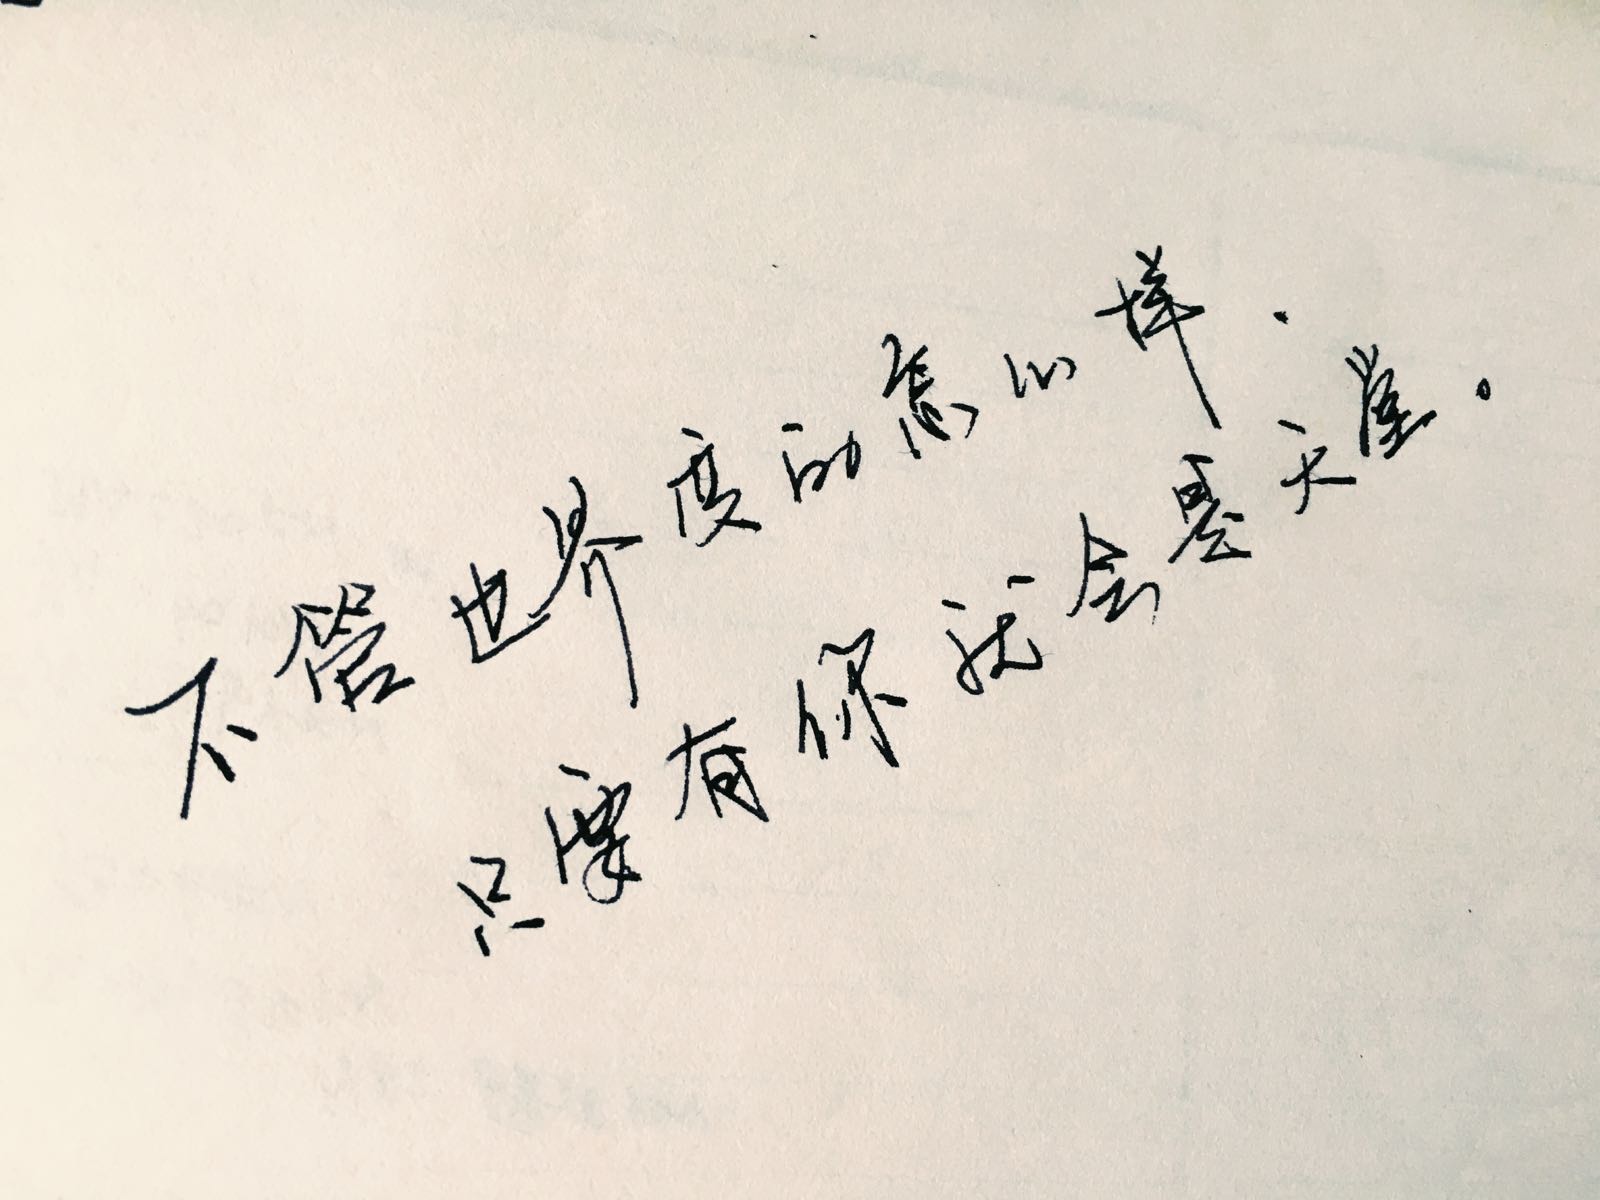 不管世界变的怎么样.
只要有你就会是天堂。